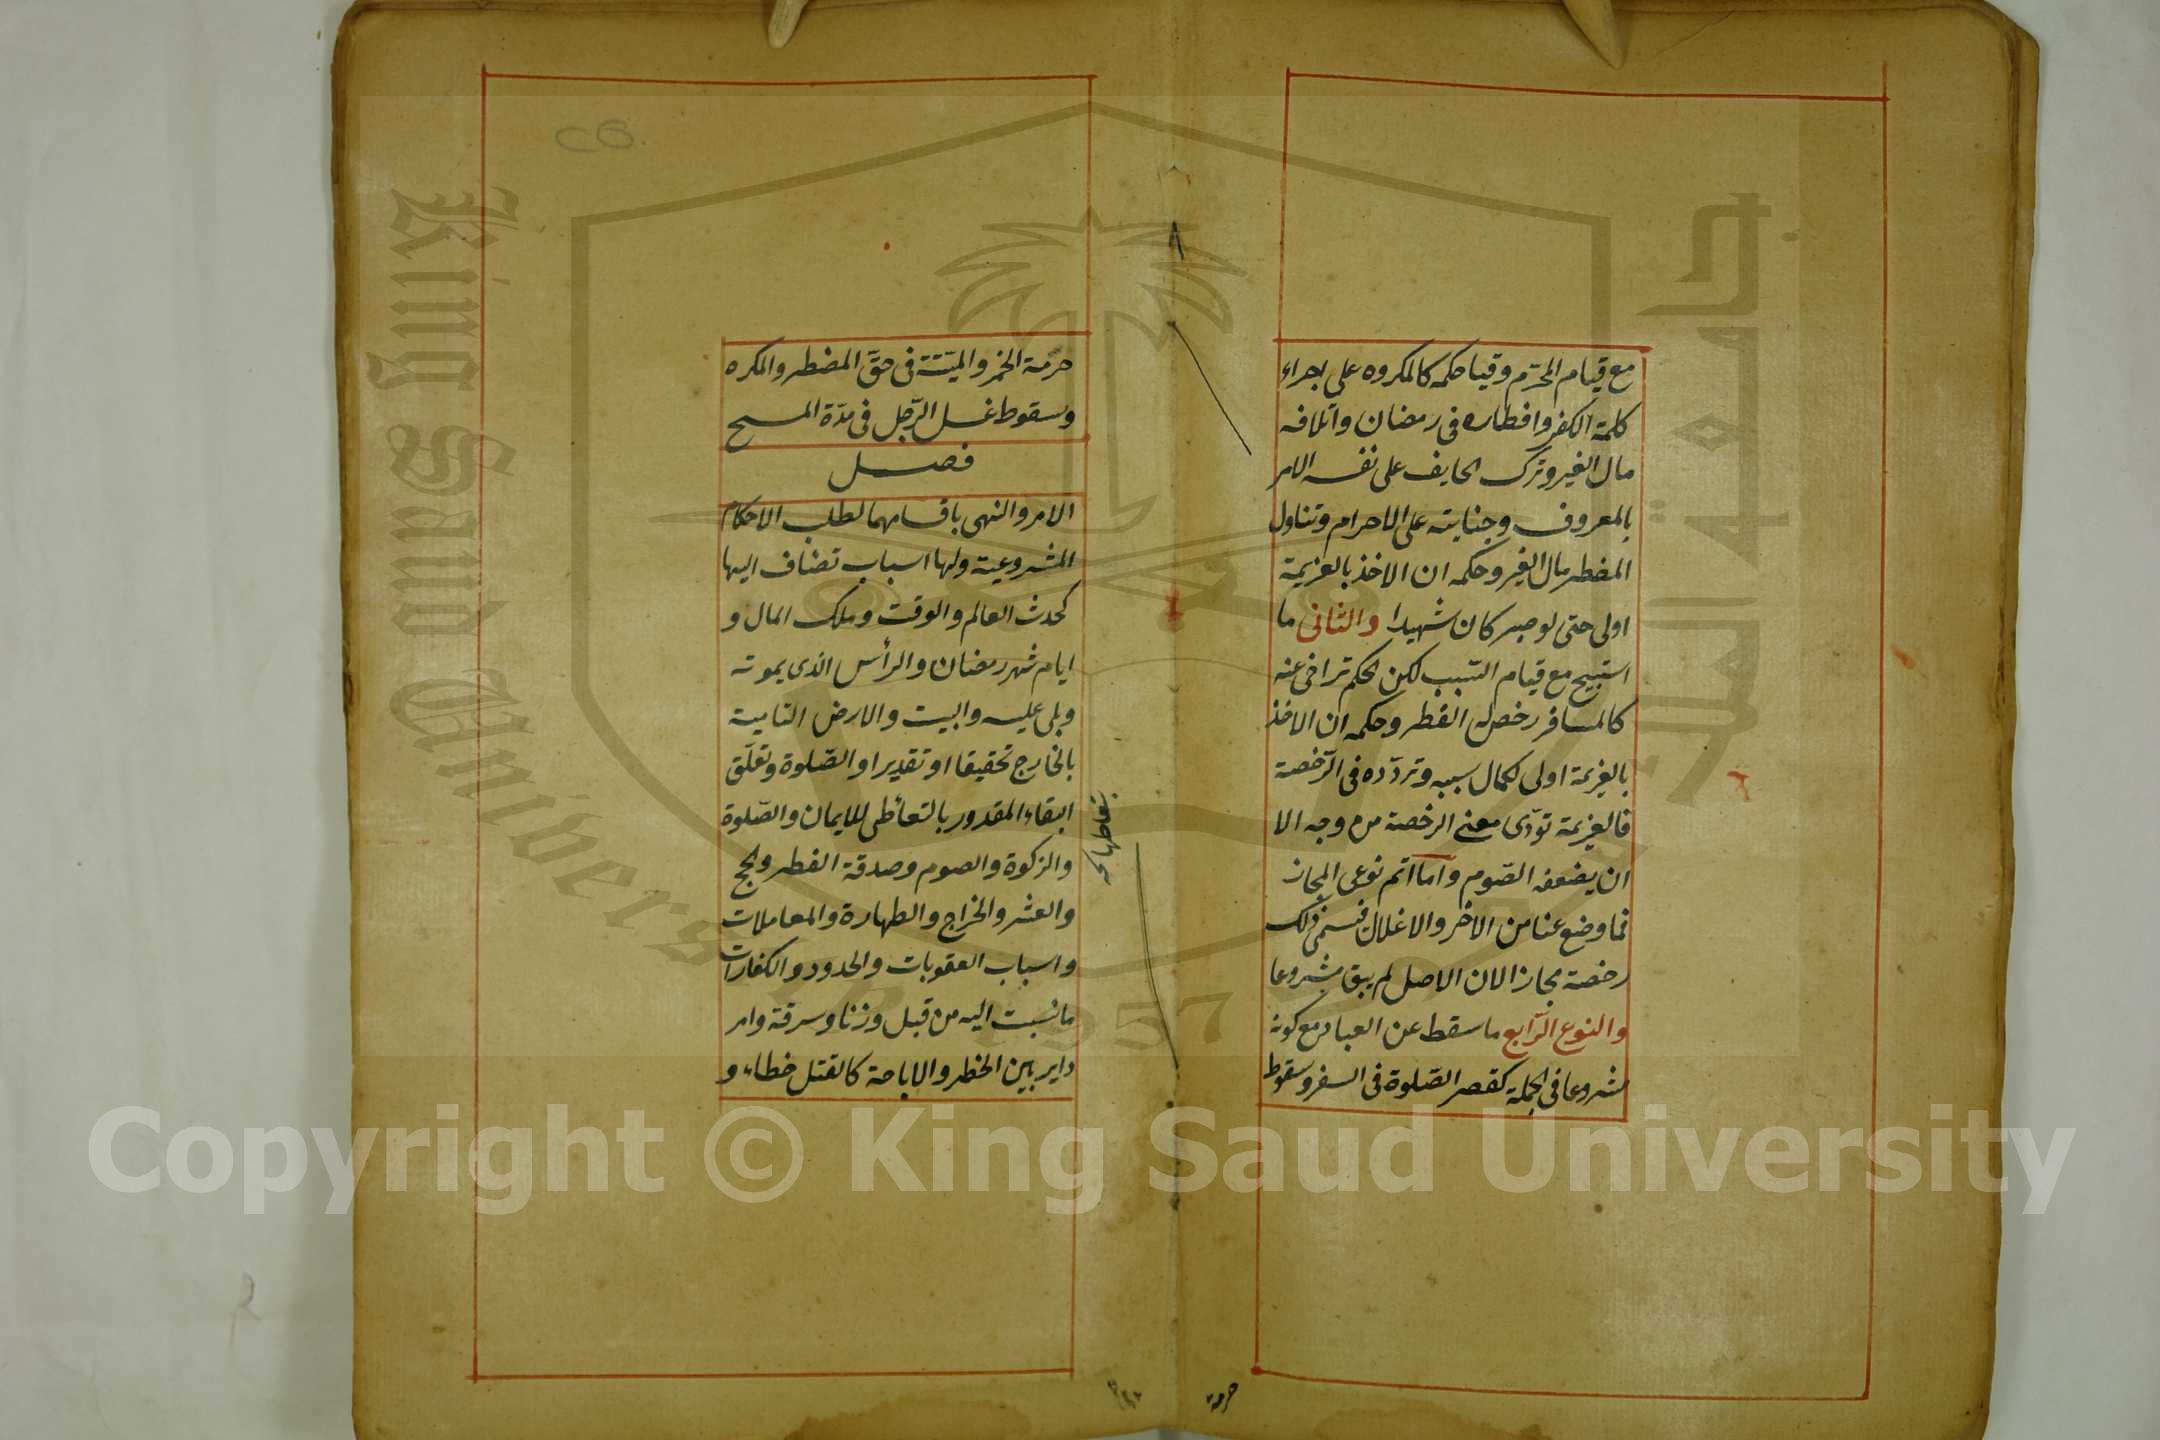 مع قيام المحرّم وقيا حكمه كالمكروه على اجراء
كلمة الكفر وافطاره فى رمضان واتلافه
مال الغير وترك الخايف على نفسه الامر
بالمعروف وجنايته على الاحرام وتناول
المضطر مال الغير وحكمه ان الاخذ بالعزيمة
اولى حتى لو صبر كان شهيدا والثانى ما
استبيح مع قيام السّبب لكن الحكم تراخى عنه
كالمسافر رخص له الفطر وحكمه ان الاخذ
بالعزيمة اولى لكمال سببه وتردّده فى الرّخصة
فالعزيمة تؤدّى معنى الرخصة من وجه الا
ان يضعفه الصّوم وأما اتم نوعى المجاز
فما وضع عنا من الاخر والاغلال فتسمى ذلك
رخصة مجازا لان الاصل لم يبق مشروعا
والنوع الرّابع ما سقط عن العباد مع كونه
مشروعا فى الجملة كقصر الصّلوة فى السفر وسقوط
حرمة
حرمة الخمر والميّتة فى حقّ المضطر والمكره
وسقوط غسل الرّجل فى مدّة المسح
فصل
الامر والنهى باقسامهما لطلب الاحكام
المشروعية ولها اسباب تضاف اليها
كحدث العالم والوقت وملك المال و
ايام شهر رمضان والرأس الذى يمونه
ويلى عليه والبيت والارض النامية
بالخارج تحقيقا او تقديرا والصّلوة وتعلّق
ابقاء المقدور بالتعاطى للايمان والصّلوة
والزكوة والصوم وصدقة الفطر والحج
والعشر والخراج والطهارة والمعاملات
واسباب العقوبات والحدود والكفارات
ما نسبت اليه من قبل وزنا وسرقة وامر
داير بين الخطر والاباحة كالقتل خطاء و
King Saud University
جامعة الملك سعود
1957
Copyright © King Saud University